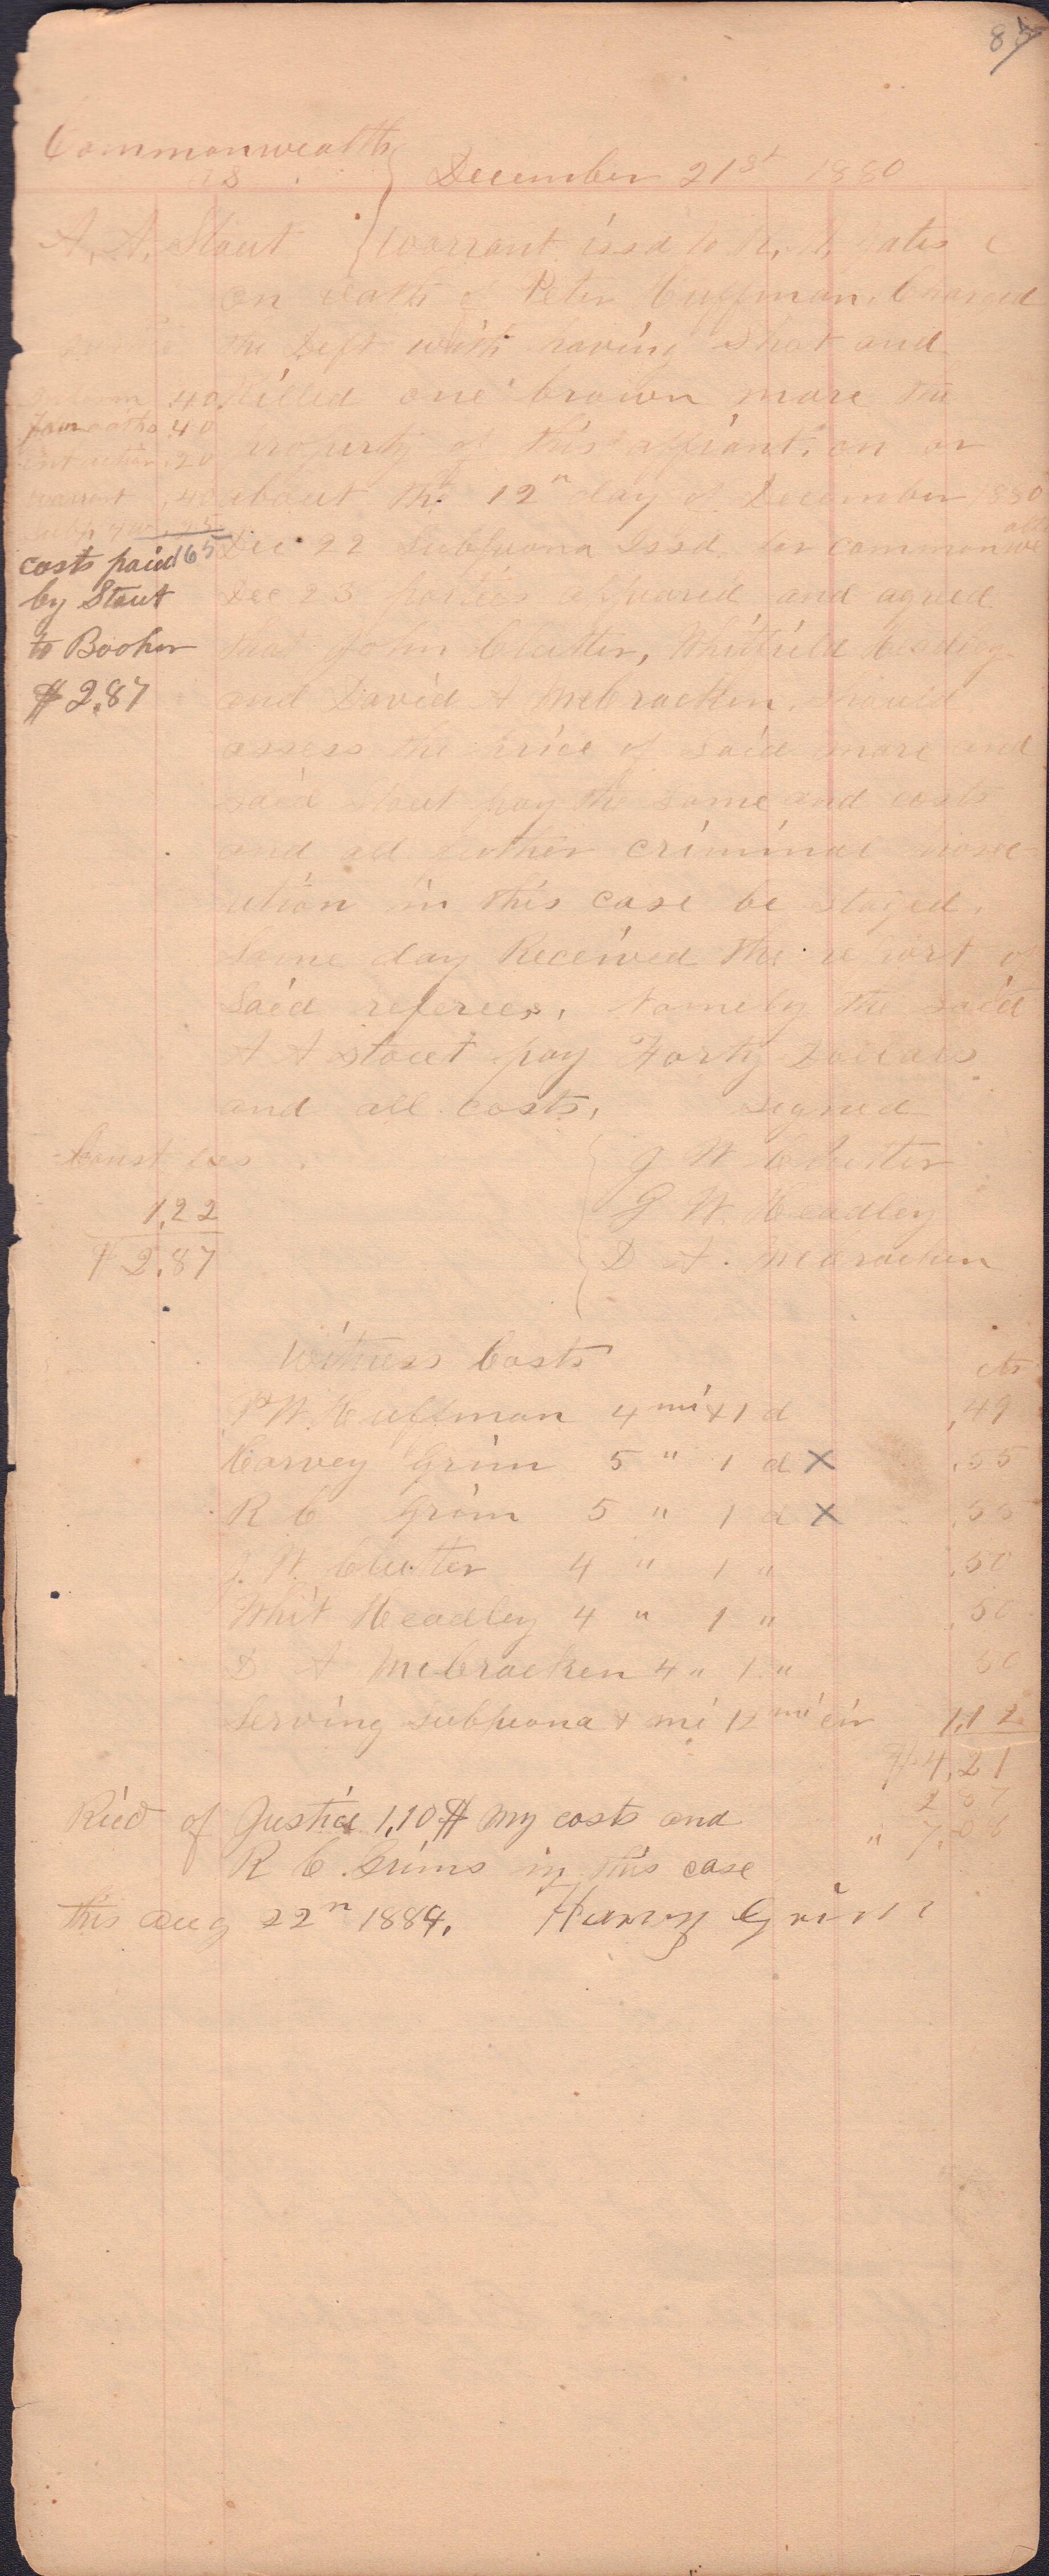 85
Commonwealth
vs } December 21st 1880
A. A. Stout { Warrant issd to
on oath of Peter Cuffman. Charged
the Deft with having Shot and
Killed one brown mare the
property of this affiant, on or
about the 12n day of December 1880
Dec 22 Subpeona Issd for commonwe
alth
Dec 23 parties appeared and agreed
that John Clutter, Whitfield Headley
and David A McCracken. should
assess the price of said mare and
said stout pay the same and costs
and all further criminal prose
cution in this case be stayed.
Same day Received the report of
Said referees, Namely the said
A A stout pay Forty Dollars
and all costs, signed
J W Clutter
G W. Headley
D A. McCracken
Inform 40
four oaths 40
20
warrant 40
25
165
costs paid
by Stout
to Booher
$2.87
Const fees
1.22
$2.87
Witness Costs cts
P W. Cuffman 4 mi + 1 d .49
Harvey Grim 5 " 1 d X .55
R C Grim 5 " 1 d X .55
J. W. Clutter 4 " 1 " .50
Whit Headley 4 " 1 " .50
D A McCracken 4 " 1 " 50
Serving subpeona + mi 12 mi cir 1.12
$4.21
2 87
" 7.08
Ricd of Justice 1,10 $ my costs and
R C. Grims in this case
this Aug 22n 1884. Harvy Grim